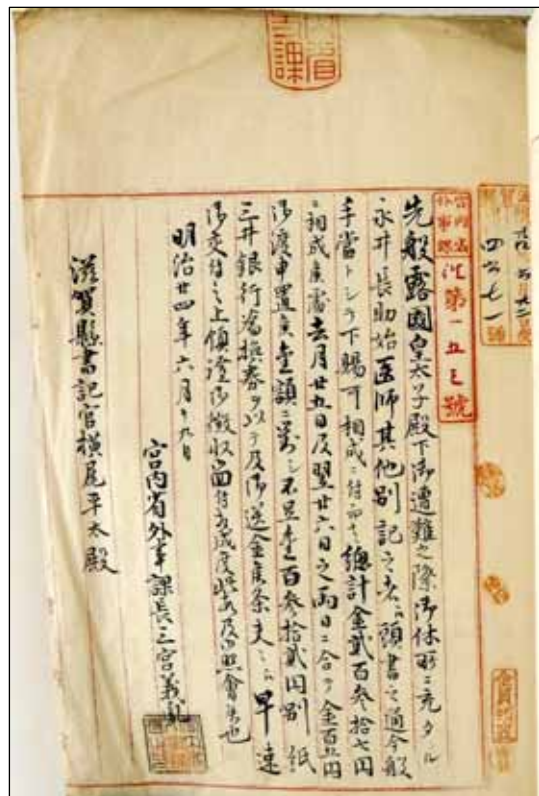 宮内省
外事課
外第一五三號
四六七一
先般露國皇太子殿下御遭難之際御休所ニ充タル
永井長助始医師其他別記之者ヘ頭書之通今般
手當トシテ下賜可相成ニ付而ハ總計金貳百参拾七円
ニ相成候処去月廿五日及翌廿六日之両日ニ合テ金百五円
御渡申置候金額ニ對シ不足金百参拾貳円別紙
三井銀行為換券ヲ以テ及御送金候条夫々ヘ早速
御交付之上領證御徴収御回付相成度此段及御照會候也
明治廿四年六月十九日
宮内省外事課長三宮義胤
滋賀縣書記官横尾平太殿